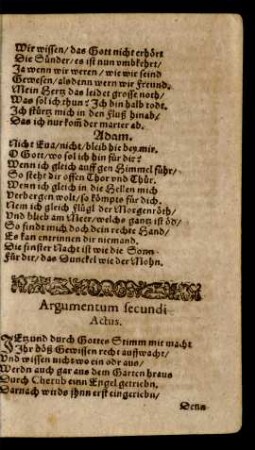 Wir wissen / das Gott nicht erhört
Die Sünder / es ist nun vmbkehrt /
Ja wenn wir weren / wie wir seind
Gewesen / alsdenn wern wir Freund.
Mein Hertz das leidet grosse noth /
Was sol ich thun? Ich bin halb todt.
Ich stürtz mich in den Fluß hinab /
Das ich nur kom̃ der marter ab.
Adam.
Nicht Eua / nicht / bleib hie bey mir.
O Gott / wo sol ich hin für dir?
Wenn ich gleich auff gen Himmel führ /
So steht dir offen Thor vnd Thür.
Wenn ich gleich in die Hellen mich
Verbergen wolt / so kömpts für dich.
Nem ich gleich Flügl der Morgenröth /
Vnd blieb am Meer / welchs gantz ist öd /
So findt mich doch dein rechte Hand /
Es kan entrinnen dir niemand.
Die finster Nacht ist wie die Sonn
Für dir / das Dunckel wie der Mohn.
Argumentum secundi
Actus.
JEtzund durch Gottes Stimm mit macht
Ihr böß Gewissen recht auffwacht /
Vnd wissen nicht wo ein odr aus /
Werdn auch gar aus dem Garten hraus
Durch Cherub einn Engel getriebn,
Darnach wirds jhnn erst eingeriebn /
Denn